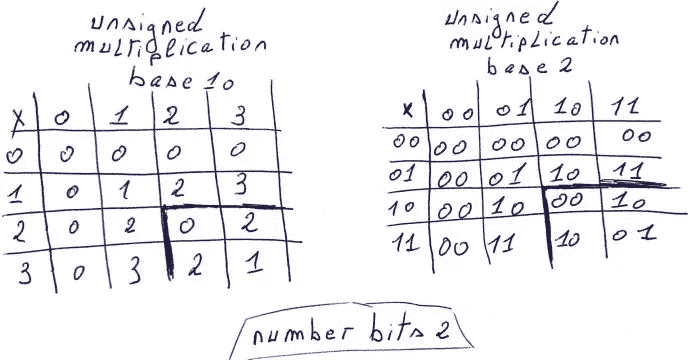 unsigned
multiplication
base 10
X 0 1 2 3
0 0 0 0 0
1 0 1 2 3
2 0 2 0 2
3 0 3 2 1
unsigned
multiplication
base 2
X 00 01 10 11
00 00 00 00 00
01 00 01 10 11
10 00 10 00 10
11 00 11 10 01
number bits 2